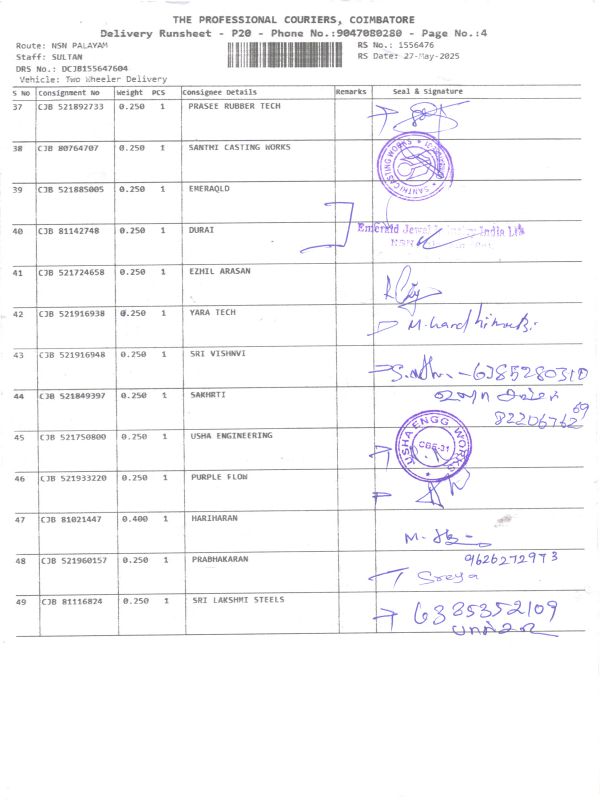 THE PROFESSIONAL COURIERS, COIMBATORE
Delivery Runsheet - P20 - Phone No.:9047080280 - Page No.:4
Route: NSN PALAYAM
RS No.: 1556476
Staff: SULTAN
RS Date: 27-May-2025
DRS No.: DCJB155647604
Vehicle: Two Wheeler Delivery
S No Consignment No Weight PCS Consignee Details Remarks Seal & Signature
37 CJB 521892733 0.250 1 PRASEE RUBBER TECH
38 CJB 80764707 0.250 1 SANTHI CASTING WORKS
SANTHI CASTING WORKS
39 CJB 521885005 0.250 1 EMERAQLD
40 CJB 81142748 0.250 1 DURAI
Emerald Jewel India Ltd
41 CJB 521724658 0.250 1 EZHIL ARASAN
42 CJB 521916938 0.250 1 YARA TECH
43 CJB 521916948 0.250 1 SRI VISHNVI
6385280310
44 CJB 521849397 0.250 1 SAKHRTI
8220676269
45 CJB 521750800 0.250 1 USHA ENGINEERING
USHA ENGG WORKS
CBE-31
46 CJB 521933220 0.250 1 PURPLE FLOW
47 CJB 81021447 0.400 1 HARIHARAN
48 CJB 521960157 0.250 1 PRABHAKARAN
9626272973
Sreya
49 CJB 81116824 0.250 1 SRI LAKSHMI STEELS
6385352109